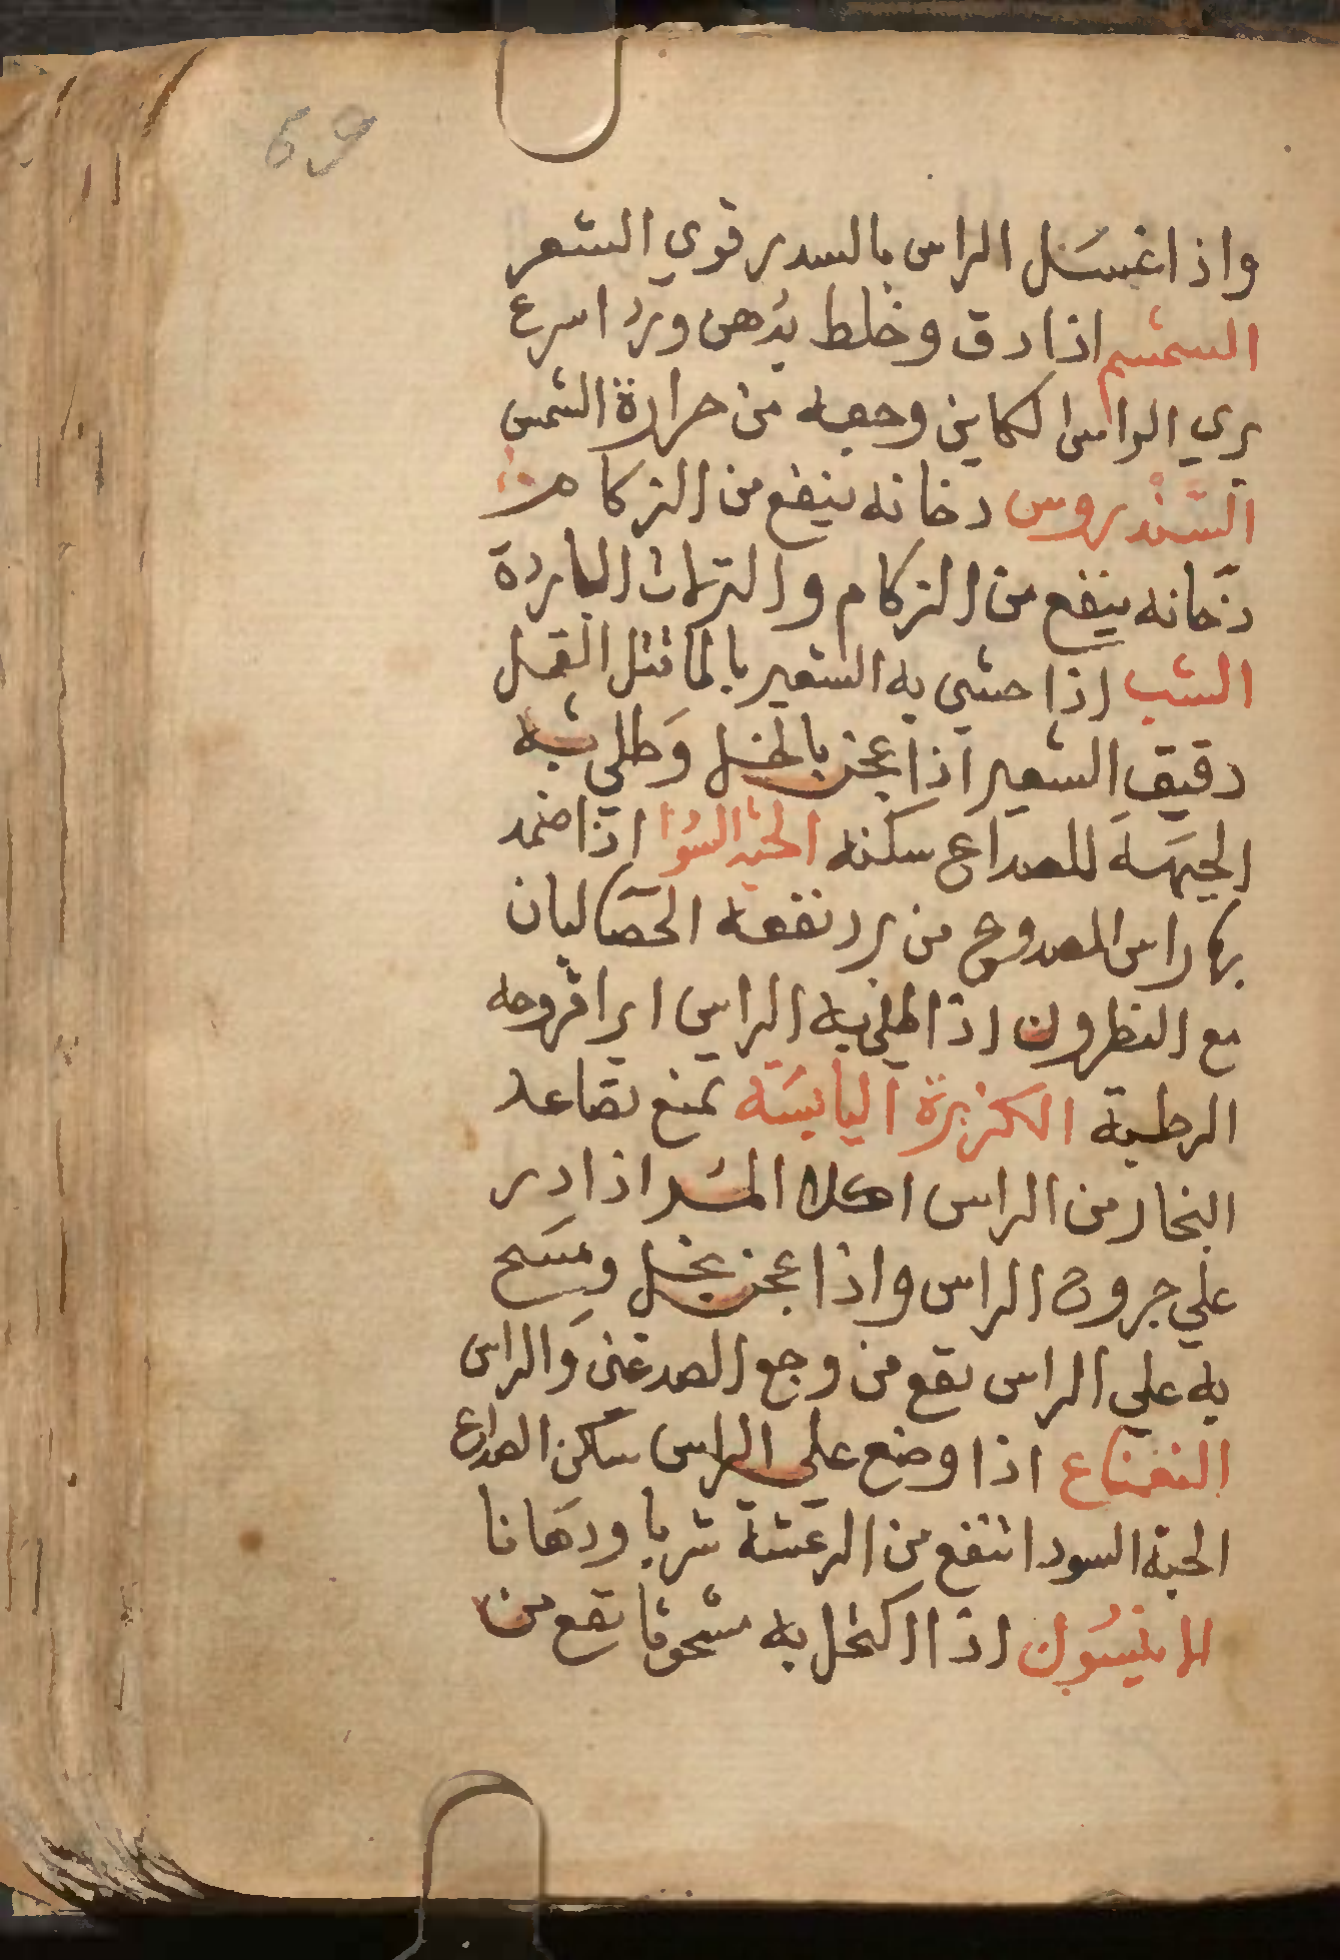 69
واذا غسَل الراس بالسدر قوي الشعر
السمسم اذا دق وخلط بدُهن ورد اسرع
بري الراس الكاين وجعه من حرارة الشمس
السَّندروس دخانه ينفع من الزكام
دخانه ينفع من الزكام والنزلات الباردة
الشب اذا حشي به الشعير بالما قتل القمل
دقيق الشعير اذا عجن بالخل وَطلي به
الجبهَة للصداع سكنه الحبه السُوا اذا ضمد
بها راس المصدوع من برد نفعه الحصا لبان
مع النطرون اذا طلي به الراس ابرا قروحه
الرطبة الكزبرة اليابسَة تمنع تصاعد
البخار من الراس اكلا المُر اذا در
علي جروح الراس واذا عجن بخل ومسَح
به علي الراس نفع من وجع الصدغين وَالراس
النعناع اذا وضع علي الراس سكن الصداع
الحبة السودا تنفع من الرعَشة شربا ودهَانا
الانيسُون اذا اكتحل به مسحوقا نفع من